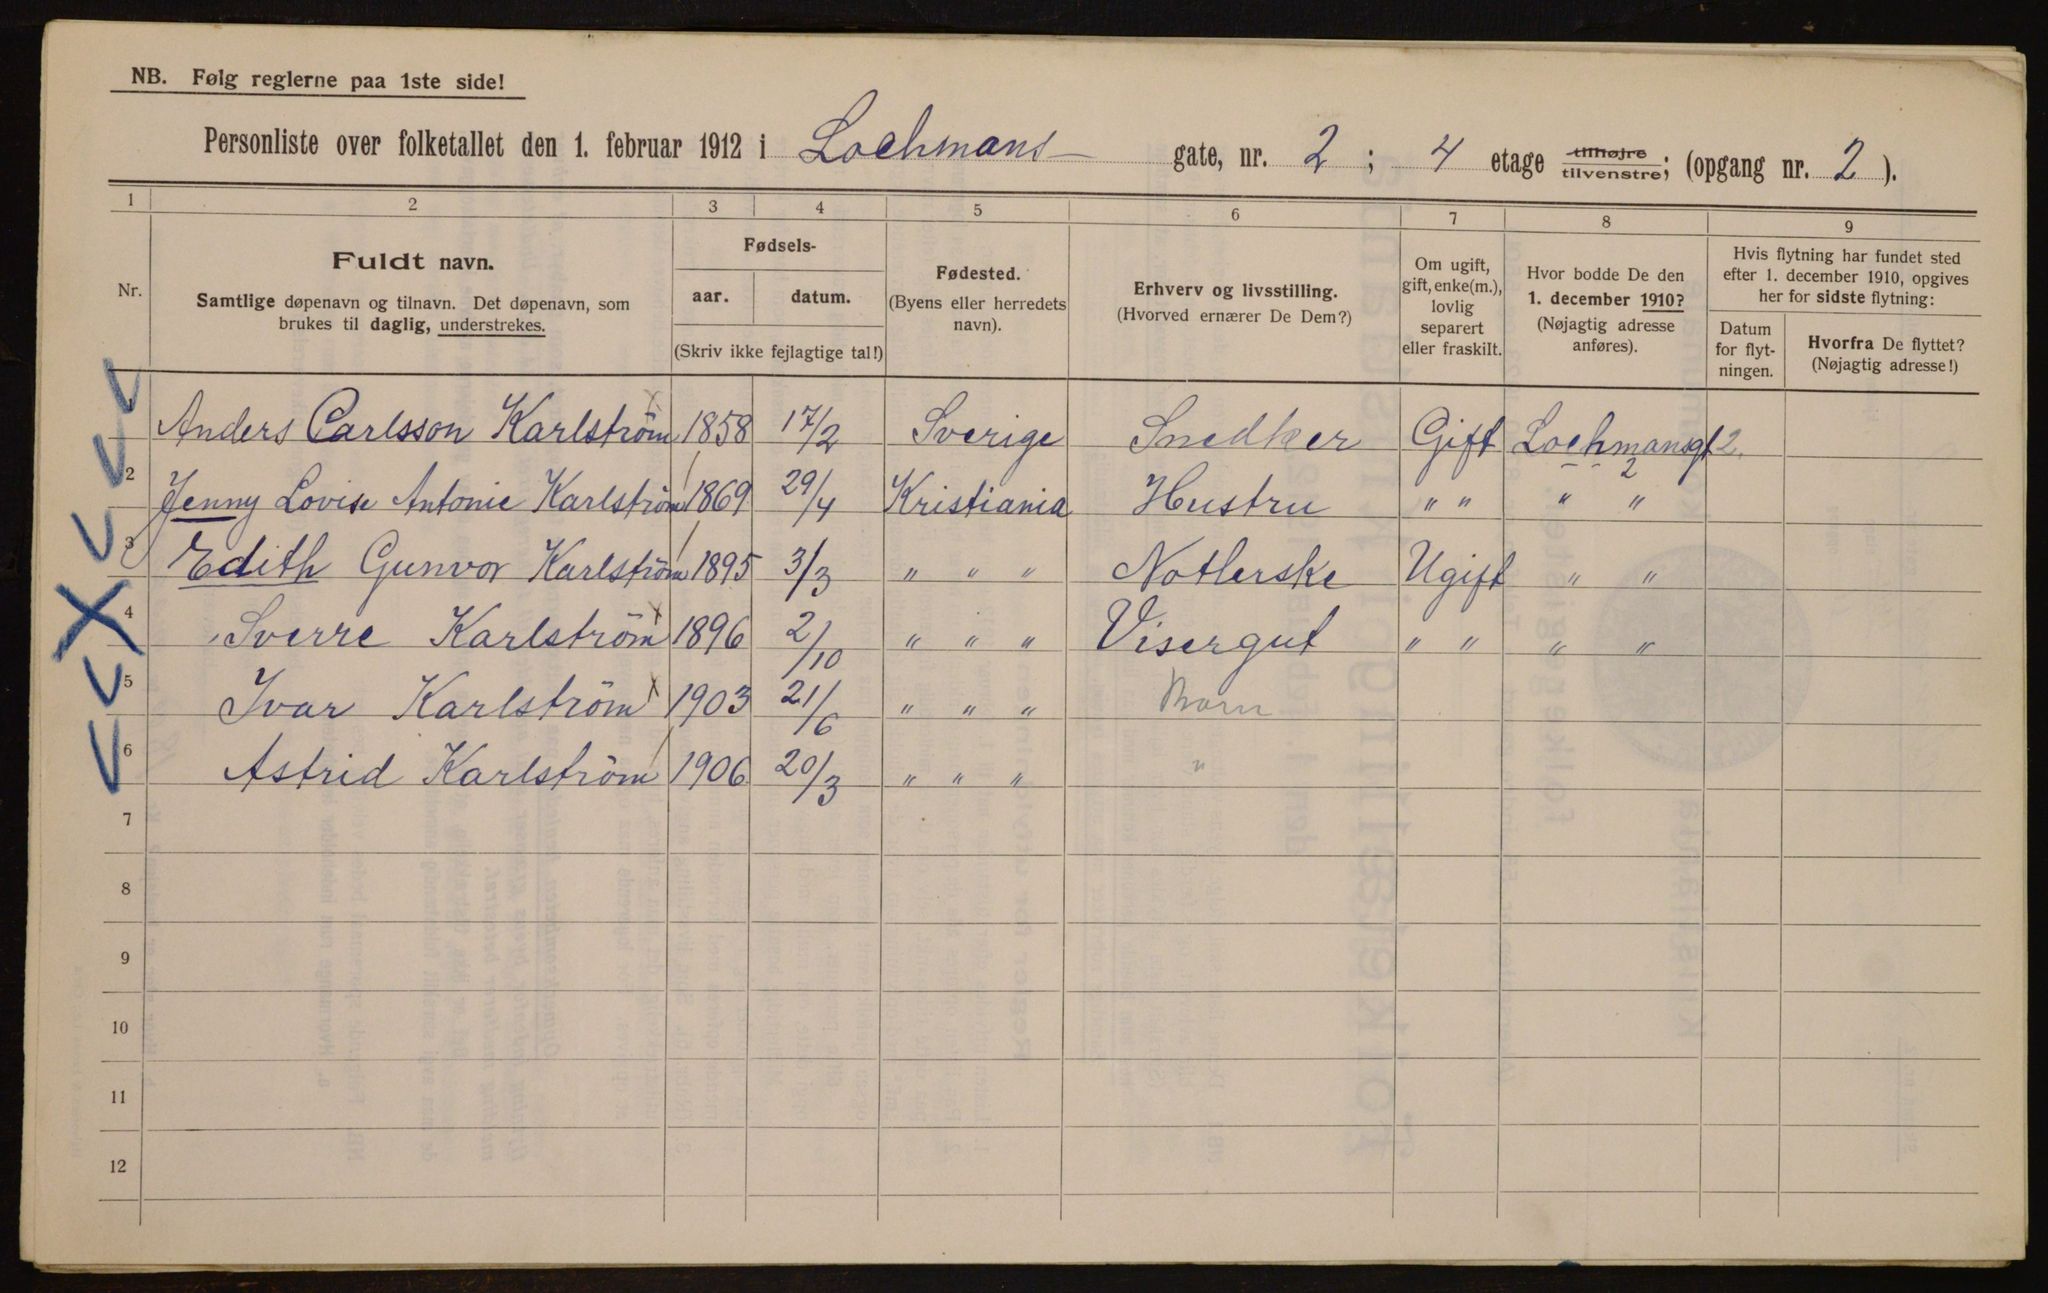 NB. Følg reglerne paa 1ste side!
Personliste over folketallet den 1. februar 1912 i Lochmans- gate, nr. 2; 4 etage tilhøjre tilvenstre; (opgang nr. 2).
1 2 3 4 5 6 7 8 9
Nr.
Fuldt navn.
Samtlige døpenavn og tilnavn. Det døpenavn, som
brukes til daglig, understrekes.
Fødsels-
aar. datum.
(Skriv ikke fejlagtige tal!)
Fødested.
(Byens eller herredets
navn).
Erhverv og livsstilling.
(Hvorved ernærer De Dem?)
Om ugift,
gift, enke(m.),
lovlig
separert
eller fraskilt.
Hvor bodde De den
1. december 1910?
(Nøjagtig adresse
anføres).
Hvis flytning har fundet sted
efter 1. december 1910, opgives
her for sidste flytning:
Datum
for flyt-
ningen.
Hvorfra De flyttet?
(Nøjagtig adresse!)
1 Anders Carlsson Karlström 1858 17/2 Sverige Snedker Gift Lochmansgt 2.
2 Jenny Lovise Antonie Karlström 1869 29/4 Kristiania Hustru " " " 2 "
3 Edith Gunvor Karlström 1895 3/3 " " " Notlerske Ugift " "
4 Sverre Karlström 1896 2/10 " " " Visergut " " " "
5 Ivar Karlström 1903 21/6 " " " Barn
6 Astrid Karlström 1906 20/3 " " " "
7
8
9
10
11
12